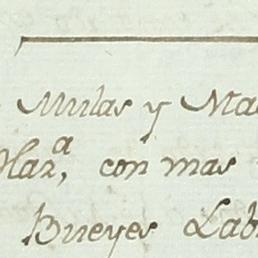 Mulas y Ma
con mas
Bueyes Lab